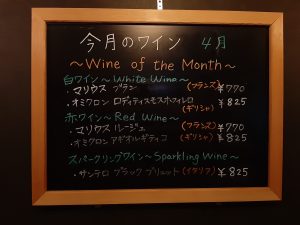 今月のワイン 4月
~Wine of the Month~
白ワイン~White Wine~
・マリウス ブラン (フランス) ¥770
・オミクロン ロディティスモスホフィレロ (ギリシャ) ¥825
赤ワイン~Red Wine~
・マリウス ルージュ (フランス) ¥770
・オミクロン アギオルギティコ (ギリシャ) ¥825
スパークリングワイン~Sparkling Wine~
・サンテロ ブラック ブリュット (イタリア) ¥825